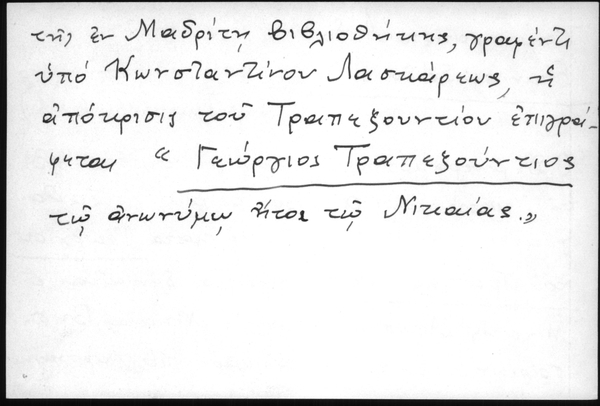 τῆς ἐν Μαδρίτῃ βιβλιοθήκης, γραφέντι
ὑπό Κωνσταντίνου Λασκάρεως, ἡ
ἀπόκρισις τοῦ Τραπεζουντίου ἐπιγρά-
φεται “ Γεώργιος Τραπεζούντιος
τῷ ἀνωνύμῳ ἤτοι τῷ Νικαίας.„